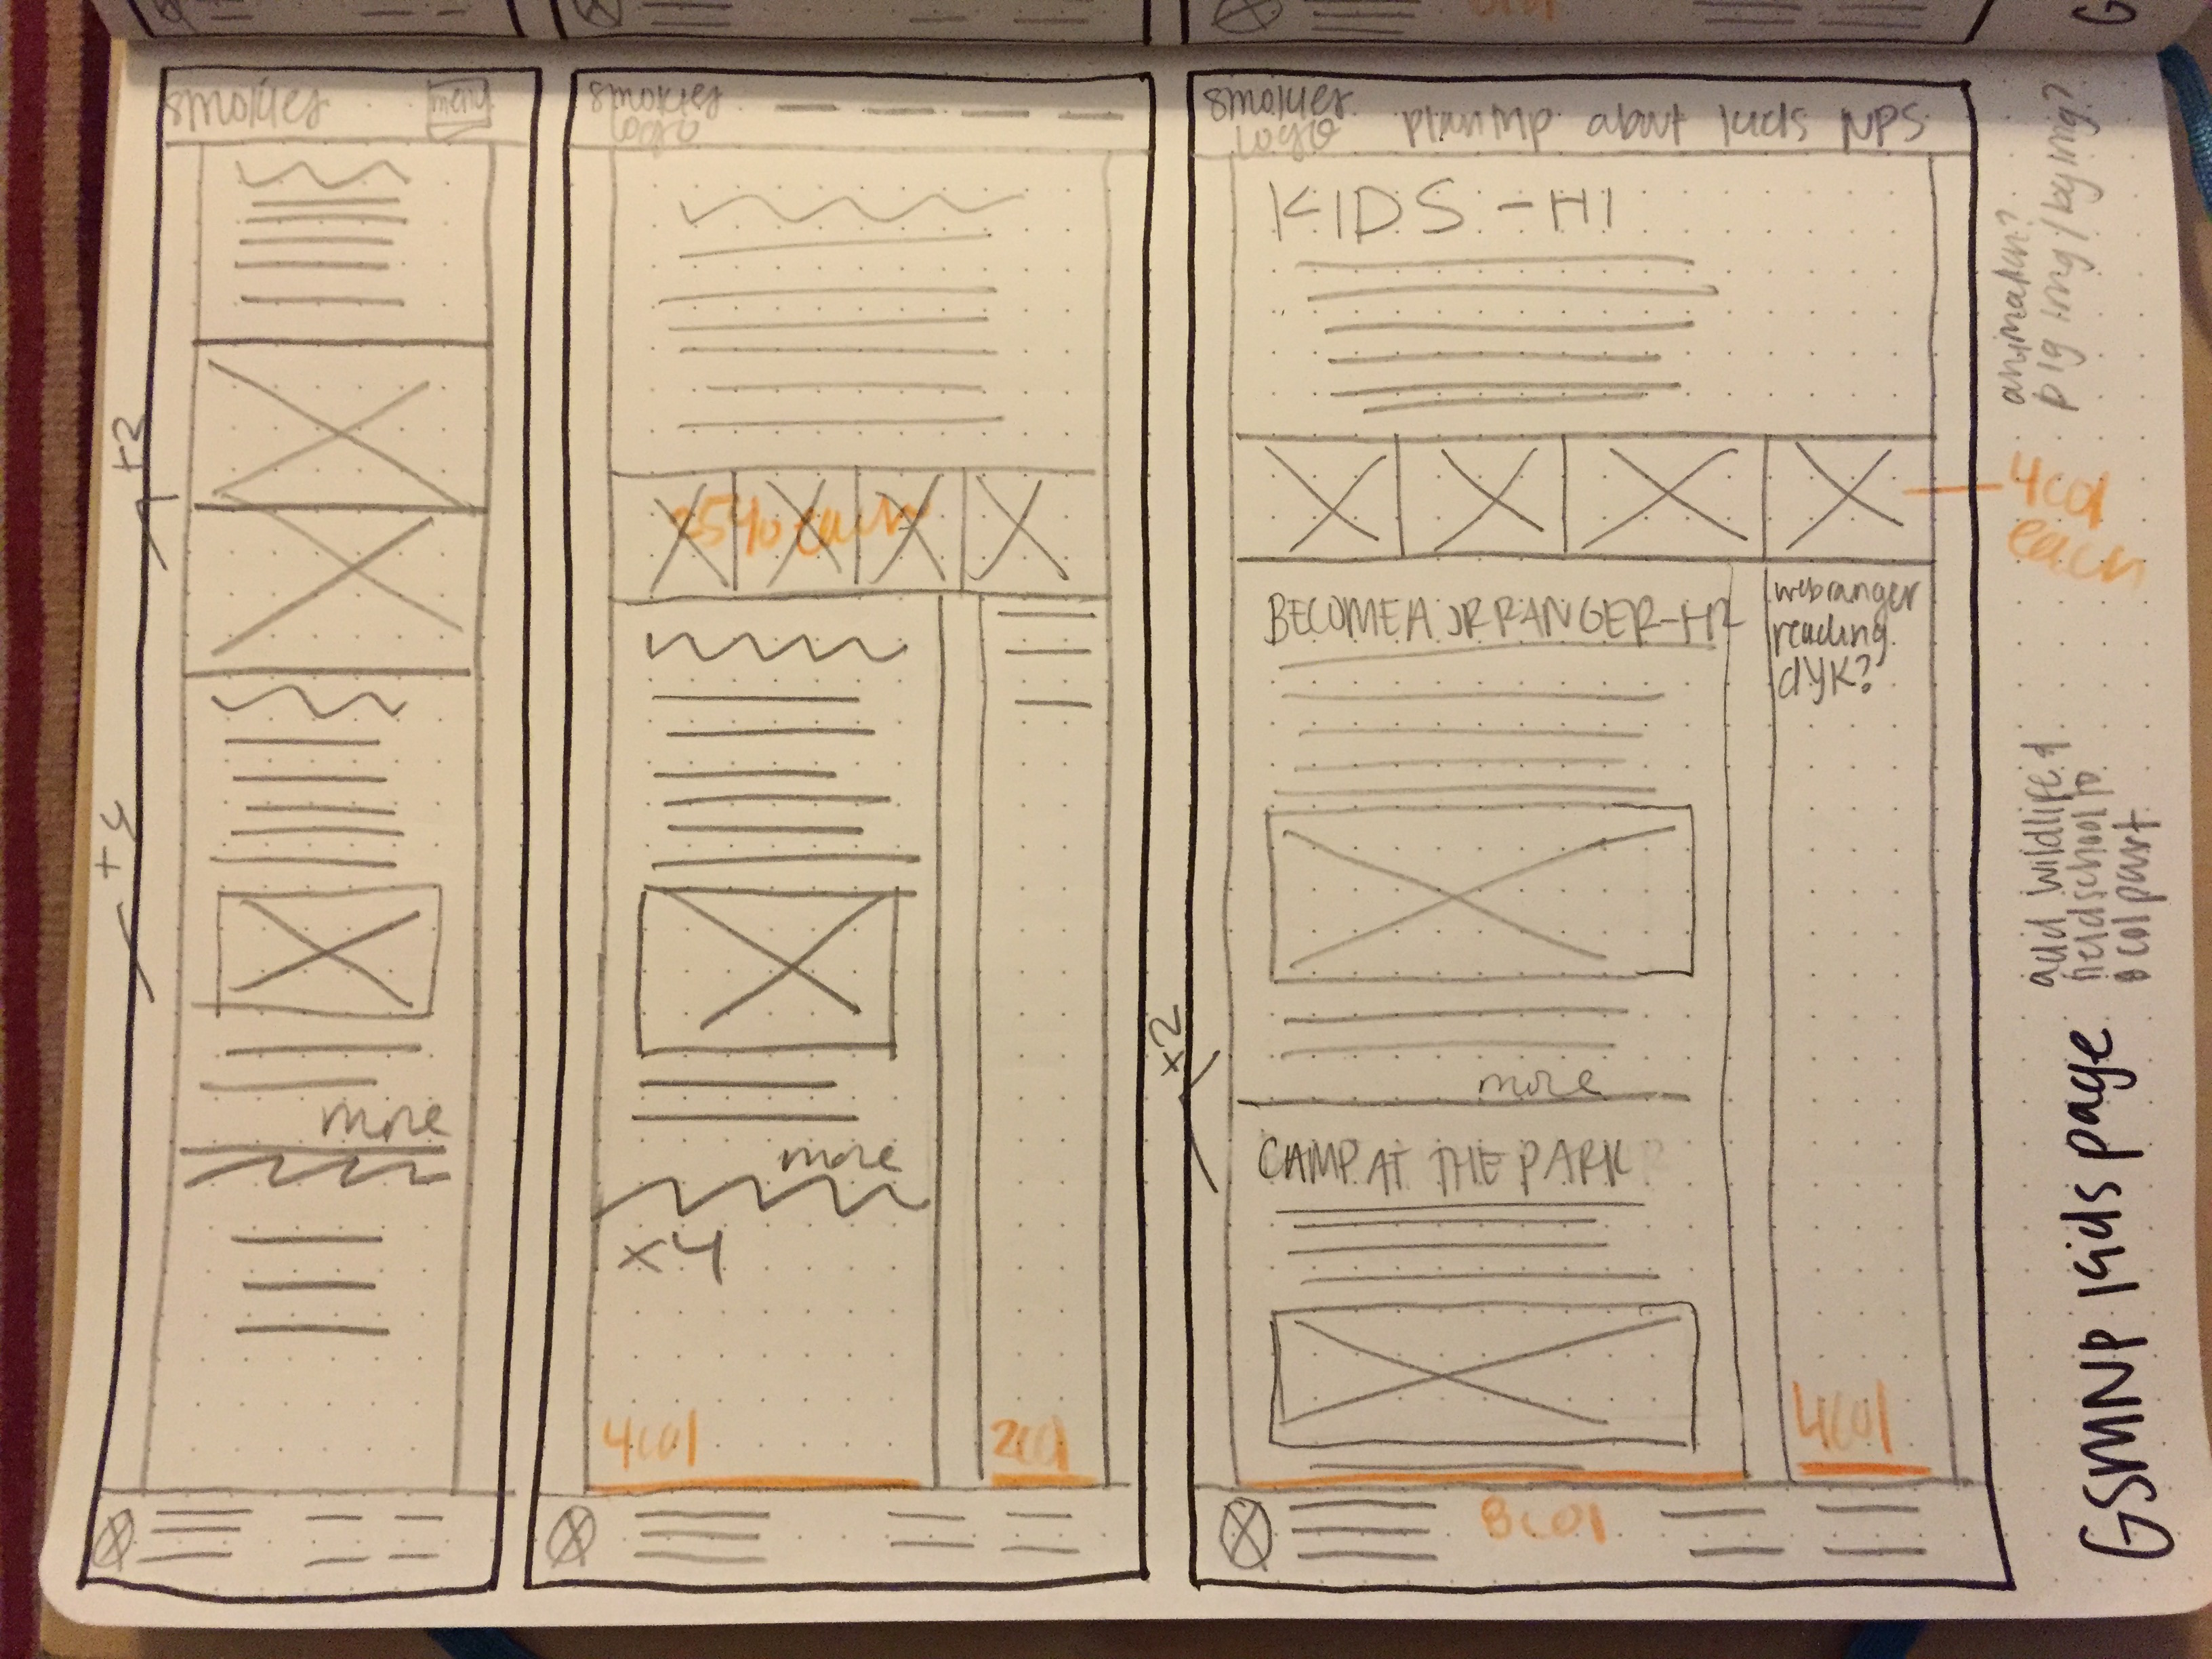 smokies
menu
+2
+4
more
smokies
logo
25% each
more
x4
4col
2col
smokies
logo
plan trip about kids NPS
KIDS - H1
BECOME A JR RANGER - H2
webranger
reading
dyk?
more
x2
CAMP AT THE PARK
4col
8col
animation?
4col
each
add wildlife &
field school to
8 col part
GSMNP kids page